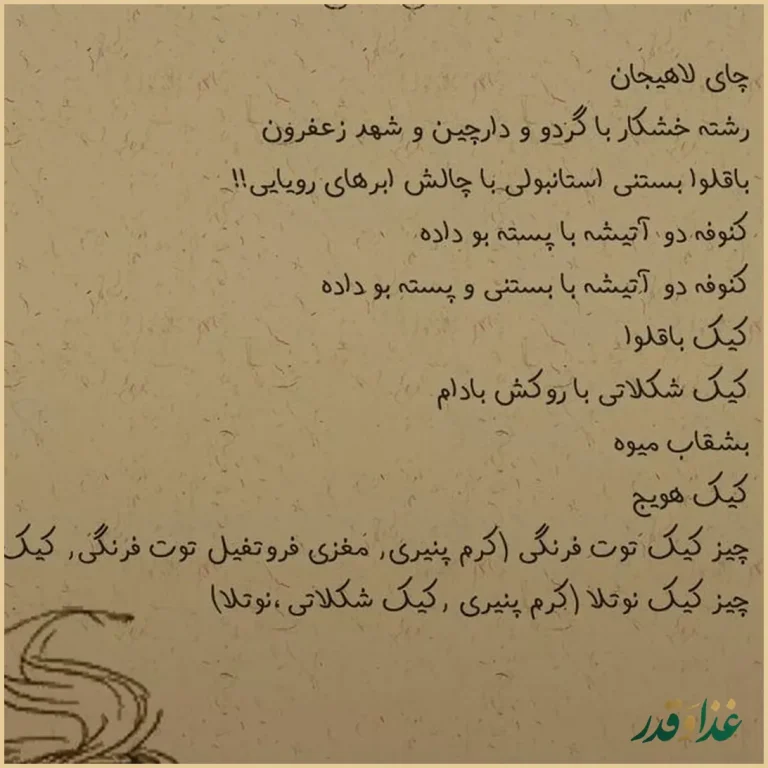 چای لاهیجان
رشته خشکار با گردو و دارچین و شهد زعفرون
باقلوا بستنی استانبولی با چالش ابرهای رویایی!!
کنوفه دو آتیشه با پسته بو داده
کنوفه دو آتیشه با بستنی و پسته بو داده
کیک باقلوا
کیک شکلاتی با روکش بادام
بشقاب میوه
کیک هویج
چیز کیک توت فرنگی (کرم پنیری, مغزی فروتفیل توت فرنگی, کیک
چیز کیک نوتلا (کرم پنیری ,کیک شکلاتی ،نوتلا)
غذا قدر